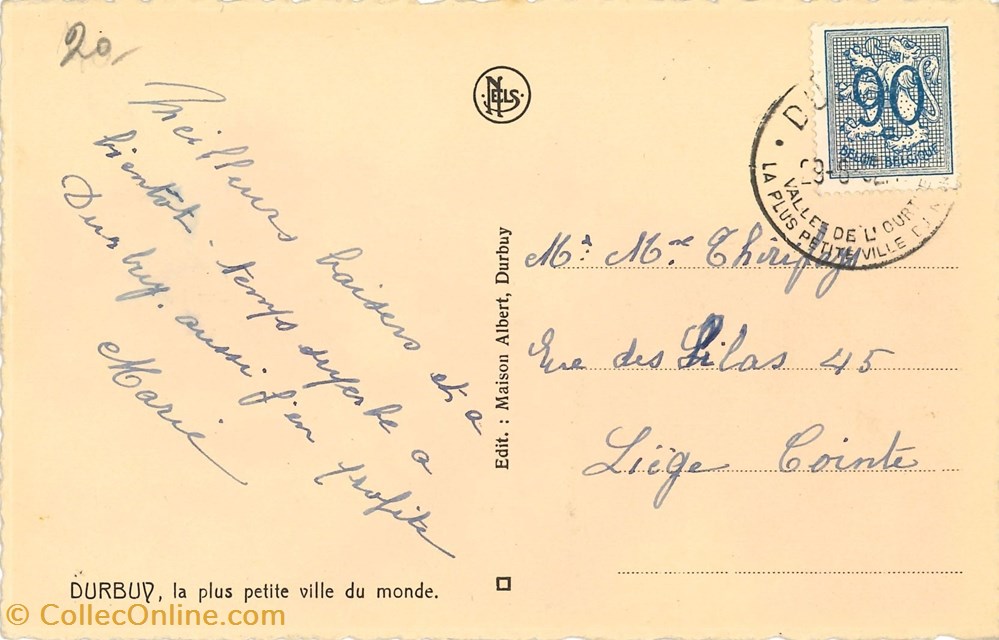 20
Meilleurs baisers et a
bientôt. temps superbe a
Durbuy. aussi j'en profite
Marie
NELS
Edit. : Maison Albert, Durbuy
90
BELGIE BELGIQUE
DU
VALLEE DE L'OURT
LA PLUS PETITE VILLE DU
Mr. Mme
Rue des Lilas 45
Liège Cointe
DURBUY, la plus petite ville du monde.
© CollecOnline.com